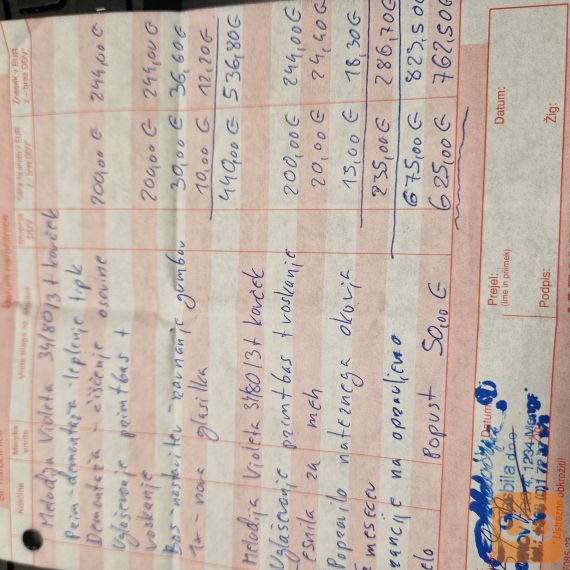 Količina
Merska enota
Vrsta blaga
Cena na enoto v EUR
z - brez DDV
Znesek v EUR
z - brez DDV
Melodija Violeta 34/80/3 + kovček
Prim - demontaža - leplenje tipk 200,00 € 244,00 €
Demontaža - čiščenje osovine
Uglaševanje prim + bas +
voskanje 200,00 € 244,00 €
Bas - nastavitev - ravnanje gumbov 30,00 € 36,60 €
1x - nova glasilka 10,00 € 12,20 €
440,00 € 536,80 €
Melodija Violeta 34/80/3 + kovček
Uglaševanje prim + bas + voskanje 200,00 € 244,00 €
esnila za meh 20,00 € 24,40 €
Popravilo nateznega okovja 15,00 € 18,30 €
235,00 € 286,70 €
mesecev
rancije na opravljeno 675,00 € 823,50
elo Popust 50,00 € 625,00 € 762,50 €
Datum:
Prejel:
(ime in priimek)
Datum:
Podpis:
Žig:
Ustrezno obkroži!